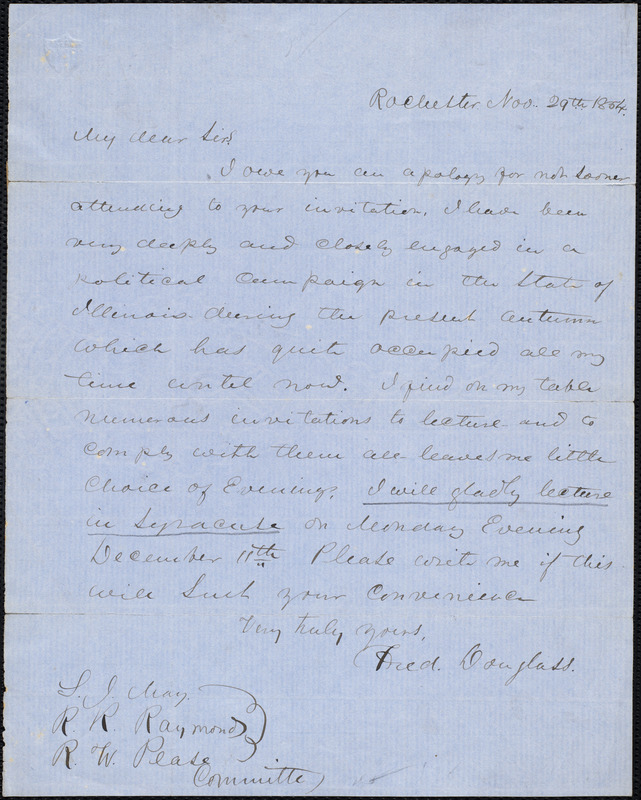 Rochester, Nov. 29th 1854.
My dear Sir,
I owe you an apology for not sooner
attending to your invitation. I have been
very deeply and closely engaged in a
political campaign in the State of
Illinois during the present autumn
which has quite occupied all my
time until now. I find on my table
numerous invitations to lecture and to
comply with them all leaves me little
choice of Evenings. I will gladly lecture
in Syracuse on Monday Evening
December 11th Please write me if this
will Suit your Convenience
Very truly yours,
Fred. Douglass.
S. J. May.
R. R. Raymond
R. W. Pease
Committee